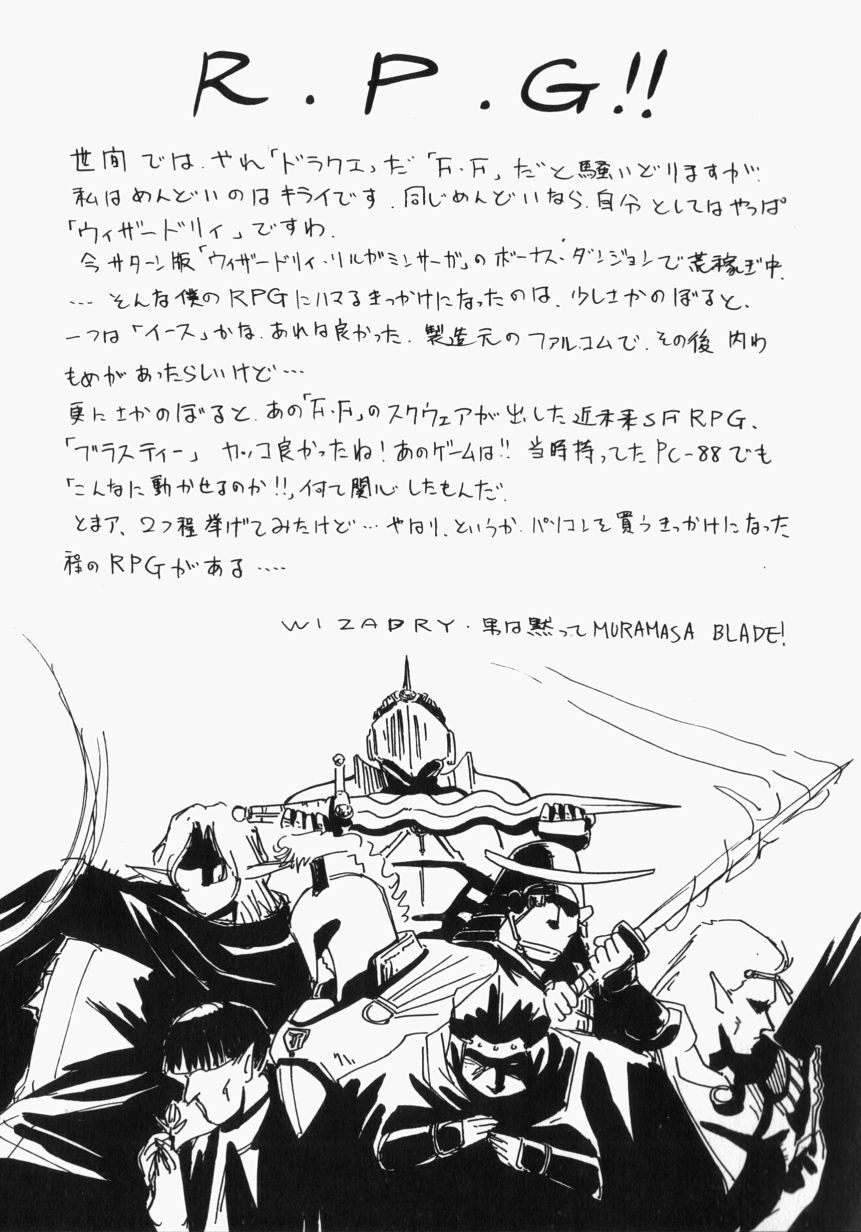 R.P.G!!
世間では、やれ「ドラクエ」だ「F.F」だと騒いどりますが、
私はめんどいのはキライです。同じめんどいなら、自分としてはやっぱ
「ウィザードリィ」ですわ。
今サターン版「ウィザードリィ・リルガミンサーガ」のボーナス・ダンジョンで荒稼ぎ中。
…そんな僕のRPGにハマるきっかけになったのは、少しさかのぼると、
一つは「イース」かな。あれは良かった。製造元のファルコムで、その後内わ
もめがあったらしいけど…
更にさかのぼると、あの「F.F」のスクウェアが出した近未来SFRPG、
「ブラスティー」カッコ良かったね!あのゲームは!!当時持ってたPC-88でも
「こんなに動かせるのか!!」何て関心したもんだ。
とまア、2つ程挙げてみたけど…やはり、というか、パソコンを買うきっかけになった
程のRPGがある‥‥
WIZADRY・男は黙ってMURAMASA BLADE!